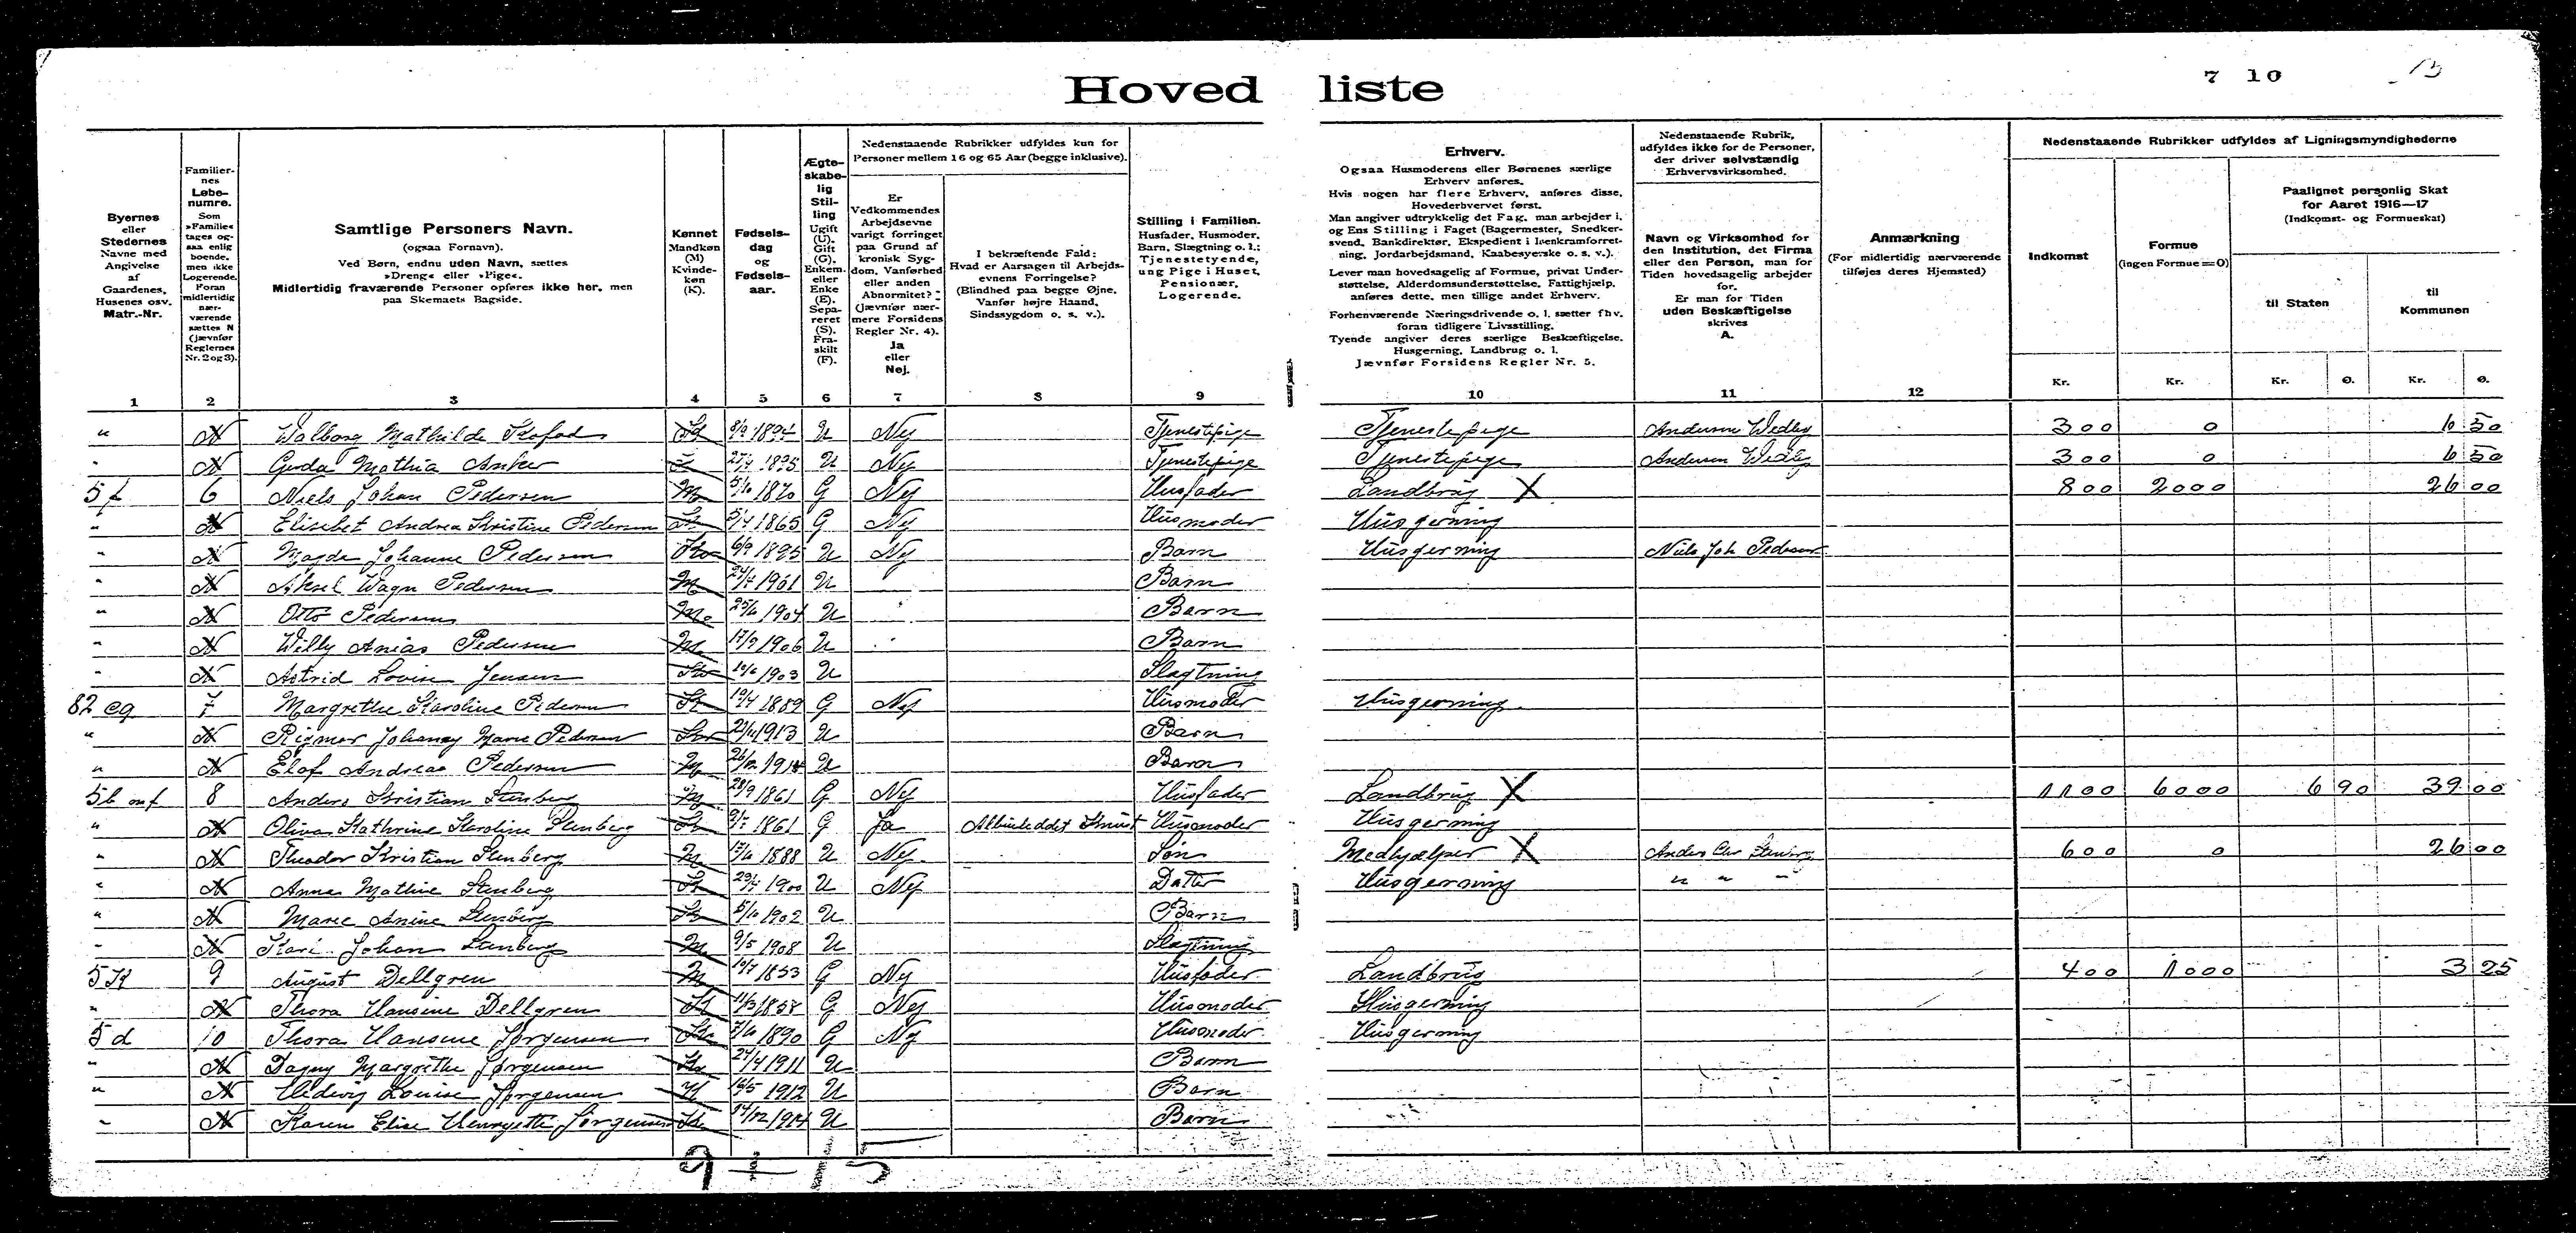 Hoved liste
7 10
13
Byernes eller Stedernes Navne med Angivelse af Gaardenes, Husenes osv. Matr.-Nr.
Familiernes Løbenumre. Som »Familie« tages ogsaa enlig boende, men ikke Logerende. Foran midlertidig nærværende sættes N (jævnfør Reglernes Nr. 2 og 3).
Samtlige Personers Navn.
(ogsaa Fornavn).
Ved Børn, endnu uden Navn, sættes »Dreng« eller »Pige«.
Midlertidig fraværende Personer opføres ikke her, men paa Skemaets Bagside.
Kønnet Mandkøn (M) Kvindekøn (K).
Fødselsdag og Fødselsaar.
Ægteskabelig Stilling Ugift (U). Gift (G). Enkem. eller Enke (E). Separeret (S). Fraskilt (F).
Nedenstaaende Rubrikker udfyldes kun for Personer mellem 16 og 65 Aar (begge inklusive).
Er Vedkommendes Arbejdsevne varigt forringet paa Grund af kronisk Sygdom, Vanførhed eller anden Abnormitet? (Jævnfør nærmere Forsidens Regler Nr. 4). Ja eller Nej.
I bekræftende Fald: Hvad er Aarsagen til Arbejdsevnens Forringelse? (Blindhed paa begge Øjne, Vanfør højre Haand, Sindssygdom o. s. v.).
Stilling i Familien. Husfader, Husmoder, Barn, Slægtning o. l.; Tjenestetyende, ung Pige i Huset, Pensionær, Logerende.
Erhverv.
Ogsaa Husmoderens eller Børnenes særlige Erhverv anføres.
Hvis nogen har flere Erhverv, anføres disse, Hovederhvervet først.
Man angiver udtrykkelig det Fag, man arbejder i, og Ens Stilling i Faget (Bagermester, Snedkersvend, Bankdirektør, Ekspedient i Isenkramforretning, Jordarbejdsmand, Kaabesyerske o. s. v.).
Lever man hovedsagelig af Formue, privat Understøttelse, Alderdomsunderstøttelse, Fattighjælp, anføres dette, men tillige andet Erhverv.
Forhenværende Næringsdrivende o. l. sætter fhv. foran tidligere Livsstilling.
Tyende angiver deres særlige Beskæftigelse, Husgerning, Landbrug o. l.
Jævnfør Forsidens Regler Nr. 5.
Nedenstaaende Rubrik, udfyldes ikke for de Personer, der driver selvstændig Erhvervsvirksomhed.
Navn og Virksomhed for den Institution, det Firma eller den Person, man for Tiden hovedsagelig arbejder for.
Er man for Tiden uden Beskæftigelse skrives A.
Anmærkning
(For midlertidig nærværende tilføjes deres Hjemsted)
Nedenstaaende Rubrikker udfyldes af Ligningsmyndighederne
Indkomst
Formue (ingen Formue = 0)
Paalignet personlig Skat for Aaret 1916—17 (Indkomst- og Formueskat)
til Staten
til Kommunen
Kr. Kr. Kr. Ø. Kr. Ø.
1 2 3 4 5 6 7 8 9 10 11 12
" N Walborg Mathilde Kofod K U Nej Tjenestepige Tjenestepige Andersen Wedby 300 0 6 50
" N Gerda Mathia Anker K 1895 U Nej Tjenestepige Tjenestepige Andersen Wedby 300 0 6 50
5 f 6 Niels Johan Pedersen M 5/10 1870 G Nej Husfader Landbrug X 800 2000 26 00
" N Elisebet Andrea Kristine Pedersen K 1865 G Nej Husmoder Husgerning
" N Magda Johanne Pedersen K 6/9 1895 U Nej Barn Husgerning Niels Joh Pedersen
" N Aksel Wagn Pedersen M 1901 U Barn
" N Otto Pedersen M 1904 U Barn
" N Willy Anias Pedersen M 17/9 1906 U Barn
" N Astrid Lovise Jensen K 1903 U Slægtning
82 cq 7 Margrethe Karoline Pedersen K 1889 G Nej Husmoder Husgerning
" N Rigmor Johanny Marie Pedersen K 1913 U Barn
" N Elof Andreas Pedersen M U Barn
5b 8 Anders Kristian Stenberg M 28/9 1861 G Nej Husfader Landbrug X 1100 6000 6 90 39 00
" N Oliva Kathrine Karoline Stenberg K 1861 G Ja Husmoder Husgerning
" N Theodor Kristian Stenberg M 1888 U Nej Søn Medhjælper X Anders Chr Stenberg 600 0 26 00
" N Anna Mathine Stenberg K 1900 U Nej Datter Husgerning " " "
" N Marie Anine Stenberg K 5/10 1902 U Barn
" N Karl Johan Stenberg M 9/5 1908 U Slægtning
5 K 9 August Dellgren M 1853 G Nej Husfader Landbrug 400 1000 3 25
" N Thora Hansine Dellgren K G Nej Husmoder Husgerning
5 d 10 Thora Hansine Jørgensen K 1890 G Nej Husmoder Husgerning
" N Dagny Margrethe Jørgensen K 24/4 1911 U Barn
" N Hedevig Louise Jørgensen K 16/5 1912 U Barn
" N Karen Elise Henryette Jørgensen K 14/12 1914 U Barn
9 + 15